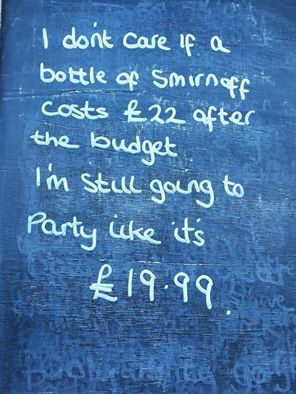 I don't care if a
bottle of Smirnoff
costs £22 after
the budget
I'm still going to
Party like it's
£19.99.